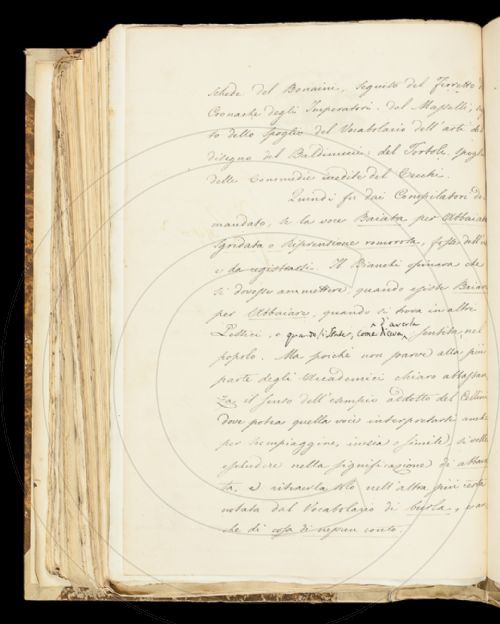 schede del Bonaini, seguito del Ferretto
Cronache degli Imperatori. del Masselli,
to dello spoglio del Vocabolario dell'arti del
disegno del Baldinucci; del Tortoli, spoglio
delle Commedie inedite del Cecchi.
Quindi fu dai Compilatori do
mandato, se la voce Baiata per Abbaiata
sgridata o Riprensione romorosa, fosse dell'u
so da registrarsi. Il Bianchi opinava che
si dovesse ammettere, quando esiste Baiare
per Abbaiare, quando si trova in altri
Lessici, e quando si senta, come diceva, d'averla sentita, nel
popolo. Ma poichè non parve alla più
parte degli Accademici chiaro abbastan
za il senso dell'esempio addotto del Cellini
dove potea quella voce interpretarsi anche
per scempiaggine, inezia o simile, si volle
escludere nella significazione di abbaia
ta, e ritenerla solo nell'altra più certa
notata dal Vocabolario di burla, e an
che di cosa di nessun conto.